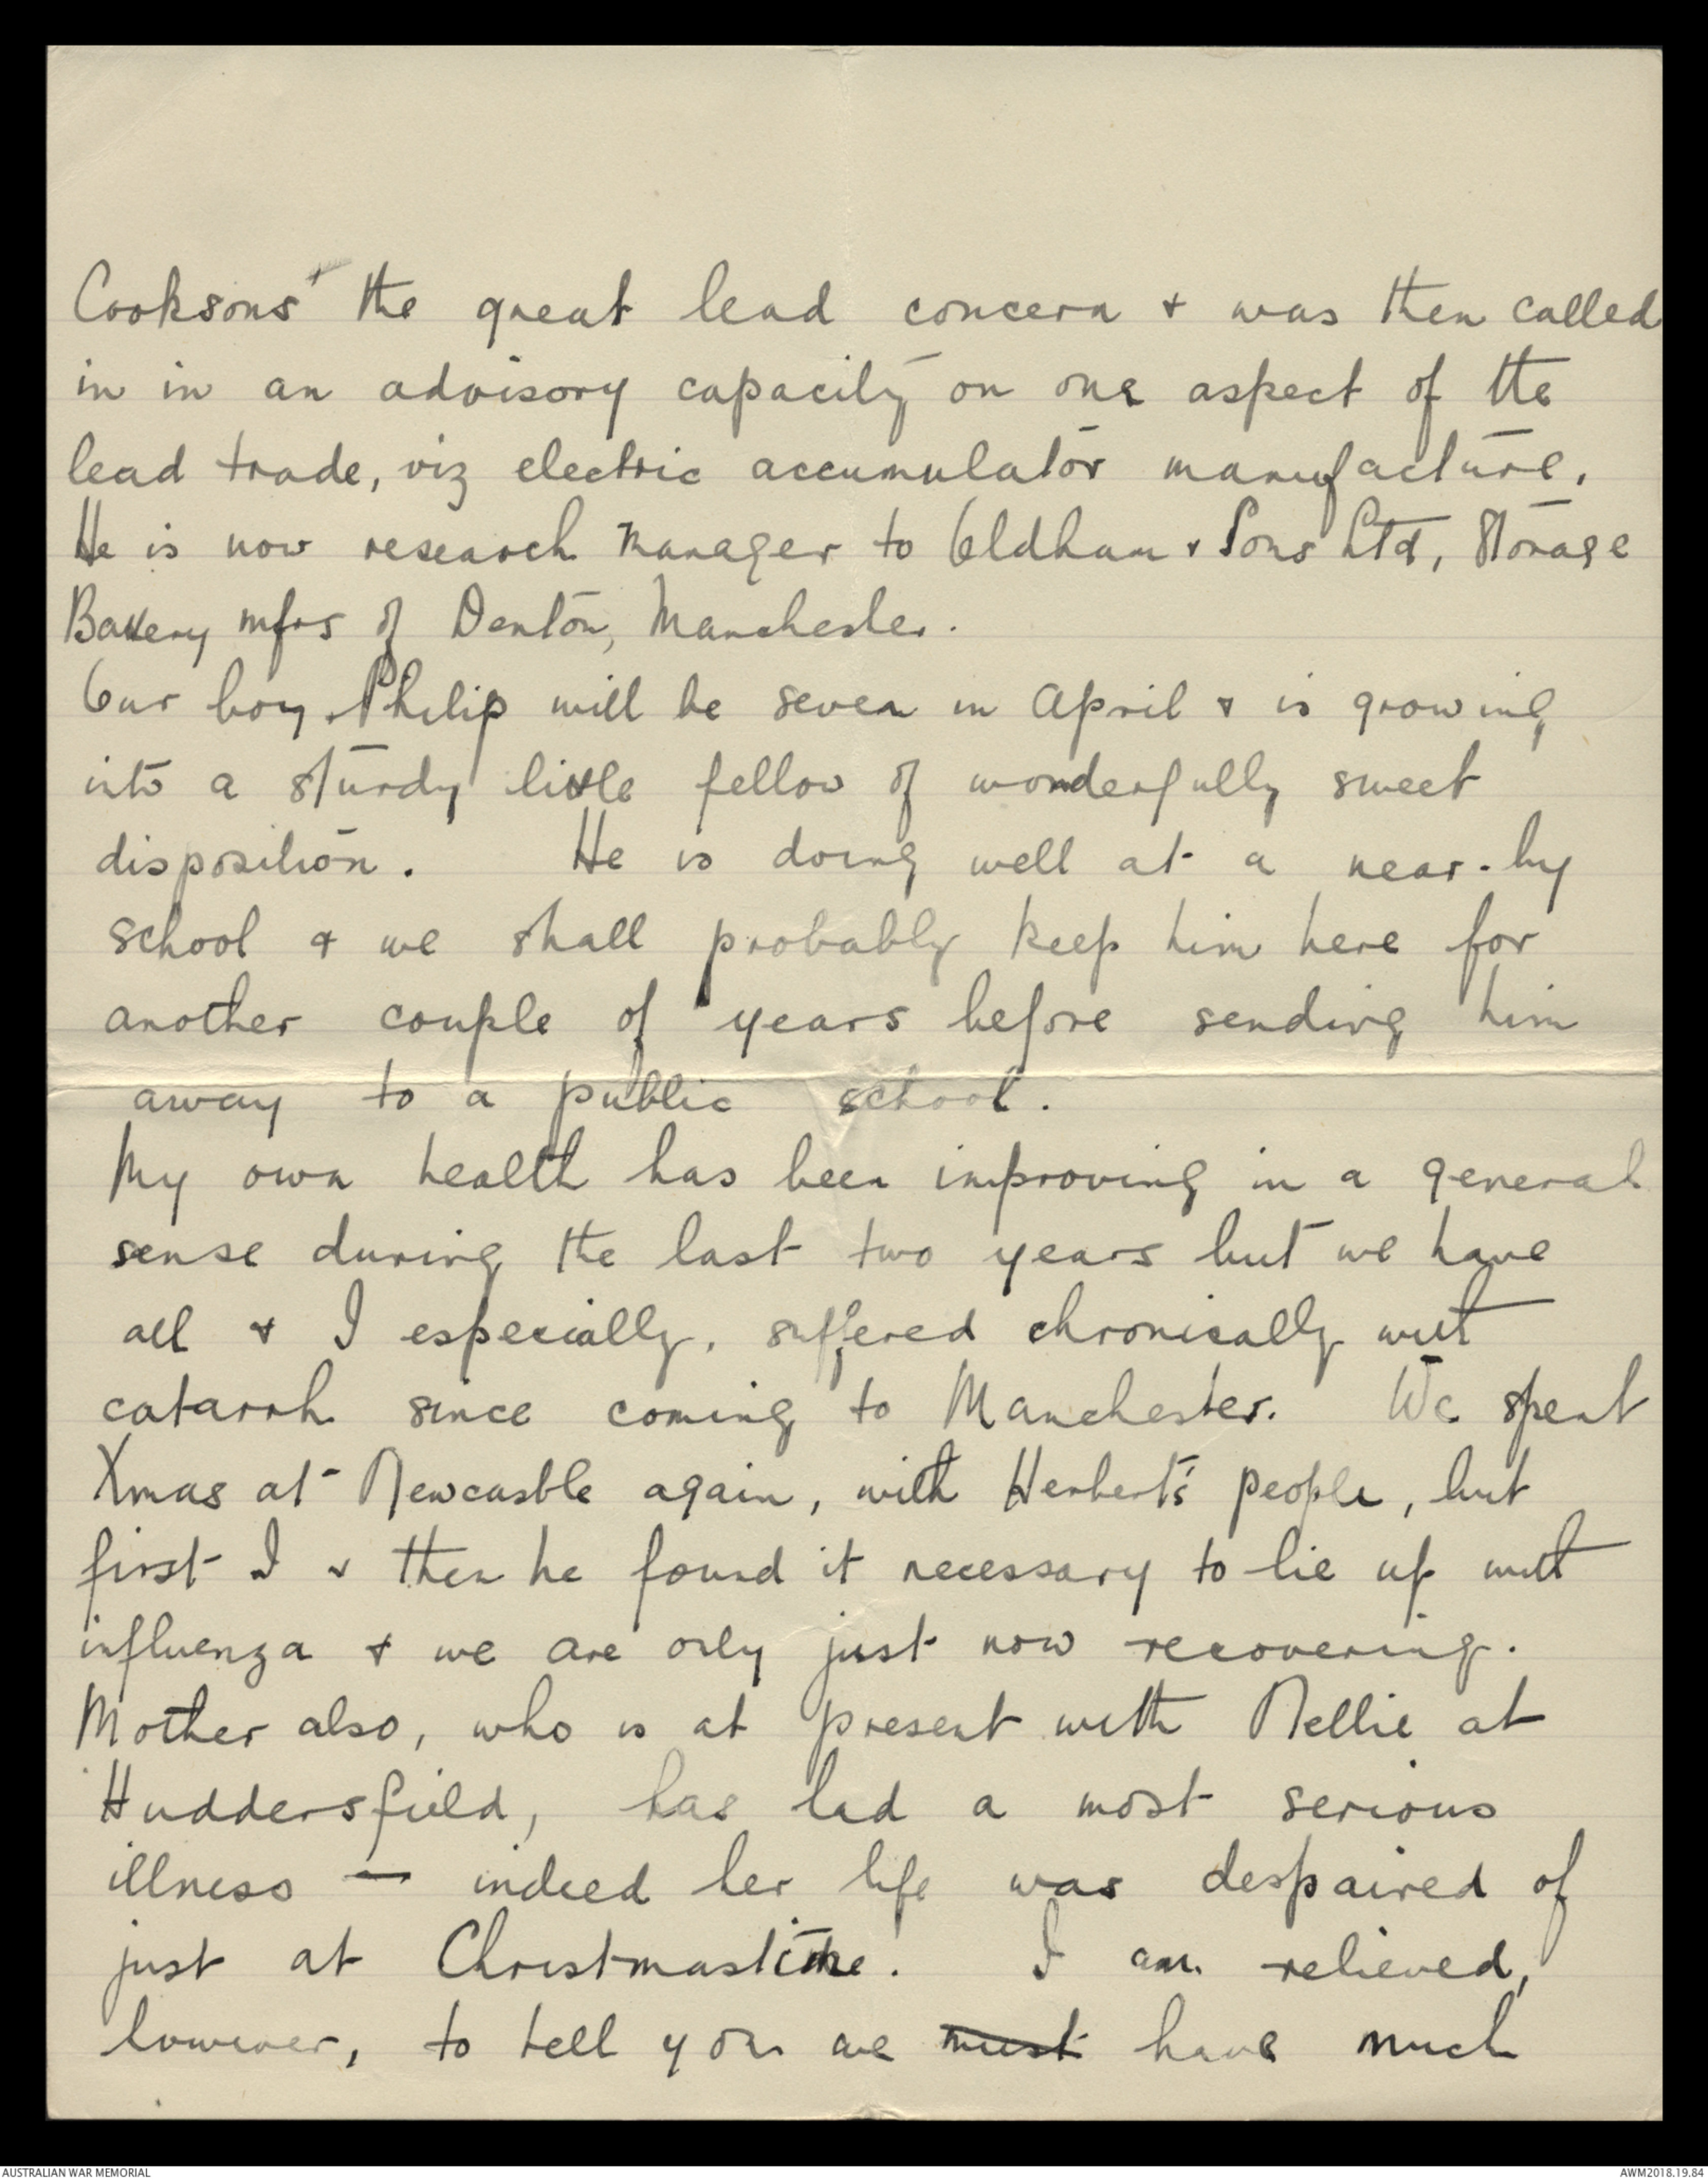 Cooksons' the great lead concern & was then called
in in an advisory capacity on one aspect of the
lead trade, viz electric accumulator manufacture.
He is now research manager to Oldham & Sons Ltd, Storage
Battery mfrs of Denton, Manchester.
Our boy Philip will be seven in April & is growing
into a sturdy little fellow of wonderfully sweet
disposition. He is doing well at a near-by
school & we shall probably keep him here for
another couple of years before sending him
away to a public school.
My own health has been improving in a general
sense during the last two years but we have
all & I especially, suffered chronically with
catarrh since coming to Manchester. We spent
Xmas at Newcastle again, with Herbert's people, but
first I & then he found it necessary to lie up with
influenza & we are only just now recovering.
Mother also, who is at present with Nellie at
Huddersfield, has had a most serious
illness — indeed her life was despaired of
just at Christmastime. I am relieved,
however, to tell you we must have much
AUSTRALIAN WAR MEMORIAL
AWM2018.19.84